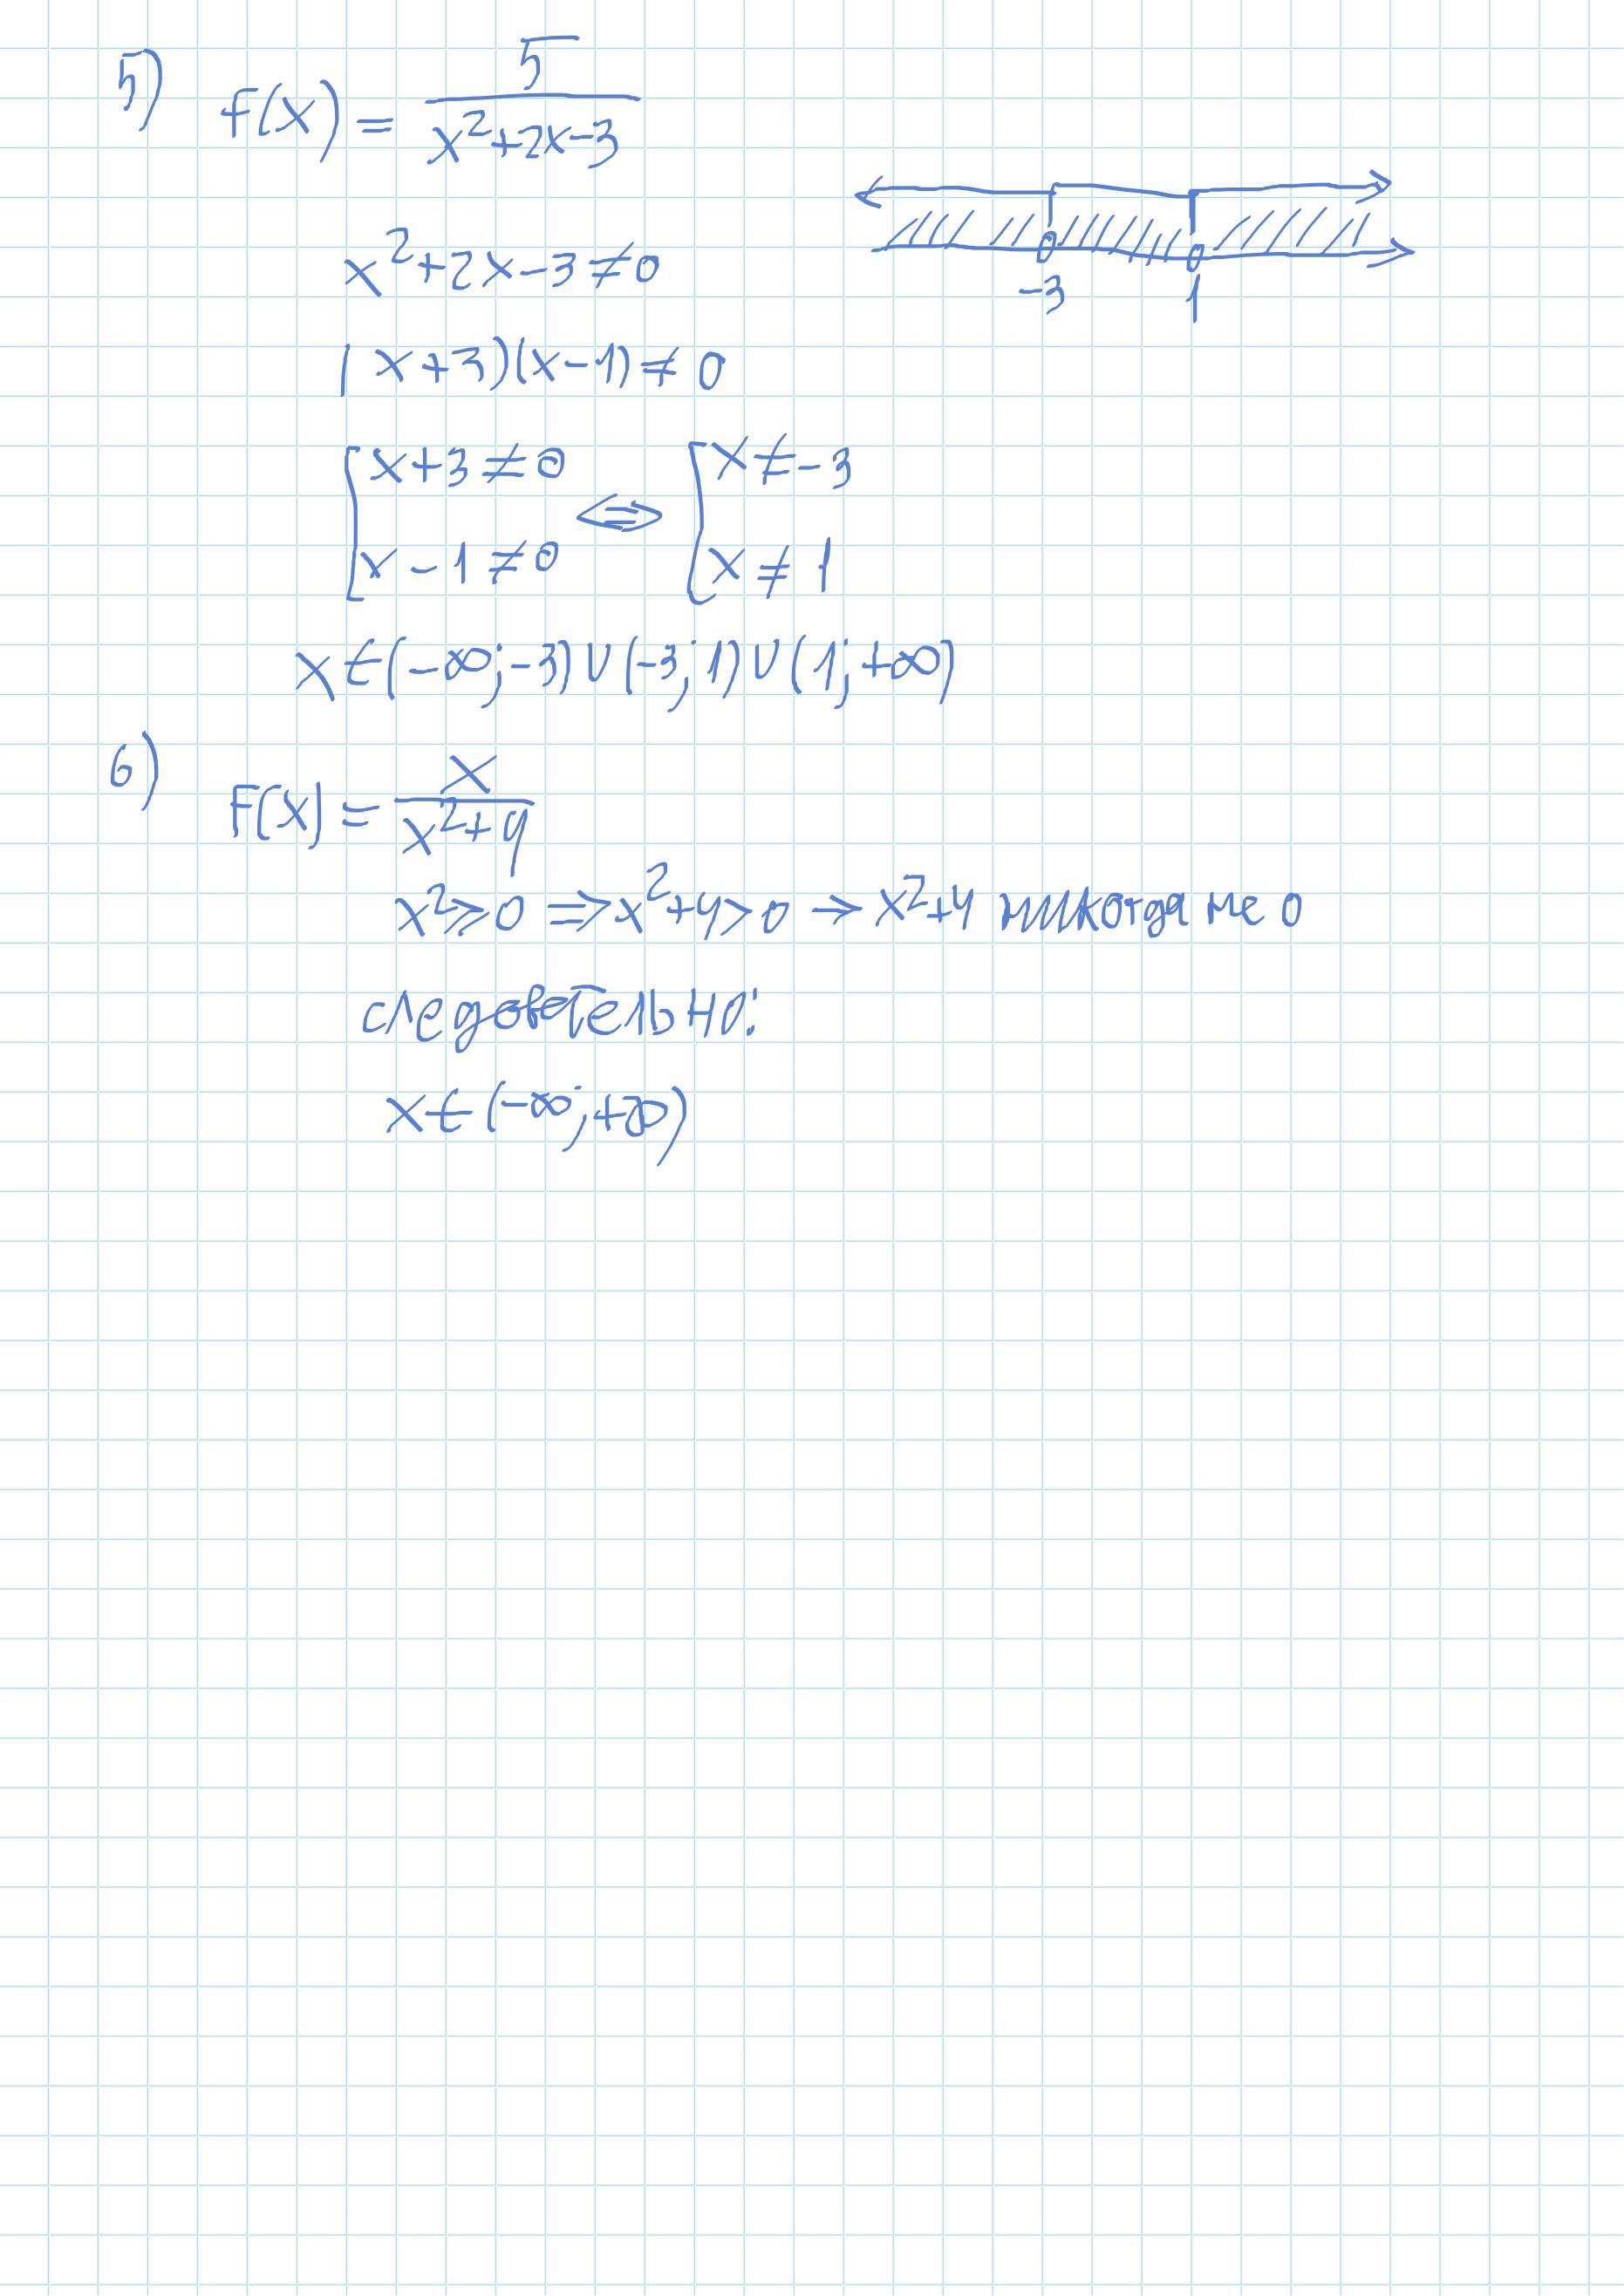 5) f(x) = 5/(x²+2x-3)
x²+2x-3≠0
-3 1
(x+3)(x-1)≠0
[x+3≠0 ⇔ [x≠-3
[x-1≠0 [x≠1
x∈(-∞;-3)∪(-3;1)∪(1;+∞)
6) F(x) = x/(x²+4)
x²⩾0 ⇒ x²+4>0 → x²+4 никогда не 0
следовательно:
x∈(-∞;+∞)